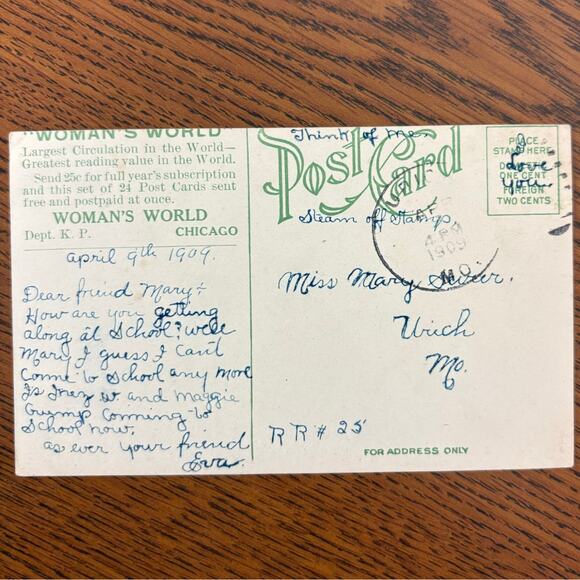 "WOMAN'S WORLD"
Largest Circulation in the World—
Greatest reading value in the World.
Send 25c for full year's subscription
and this set of 24 Post Cards sent
free and postpaid at once.
WOMAN'S WORLD
Dept. K. P. CHICAGO
april 9th 1909.
Dear friend Mary÷
How are you getting
along at School? well
Mary I guess I can't
Come to School any more
Is Inez w and maggie
Crump Comming to
School now.
as ever your friend
Eva.
Think of me.
Post Card
Steam off Stamp.
URICH
4 PM
1909
MO.
PLACE
STAMP HERE
DOMESTIC
ONE CENT
FOREIGN
TWO CENTS
I
Love
you.
Miss Mary
Urich
Mo.
RR # 25
FOR ADDRESS ONLY